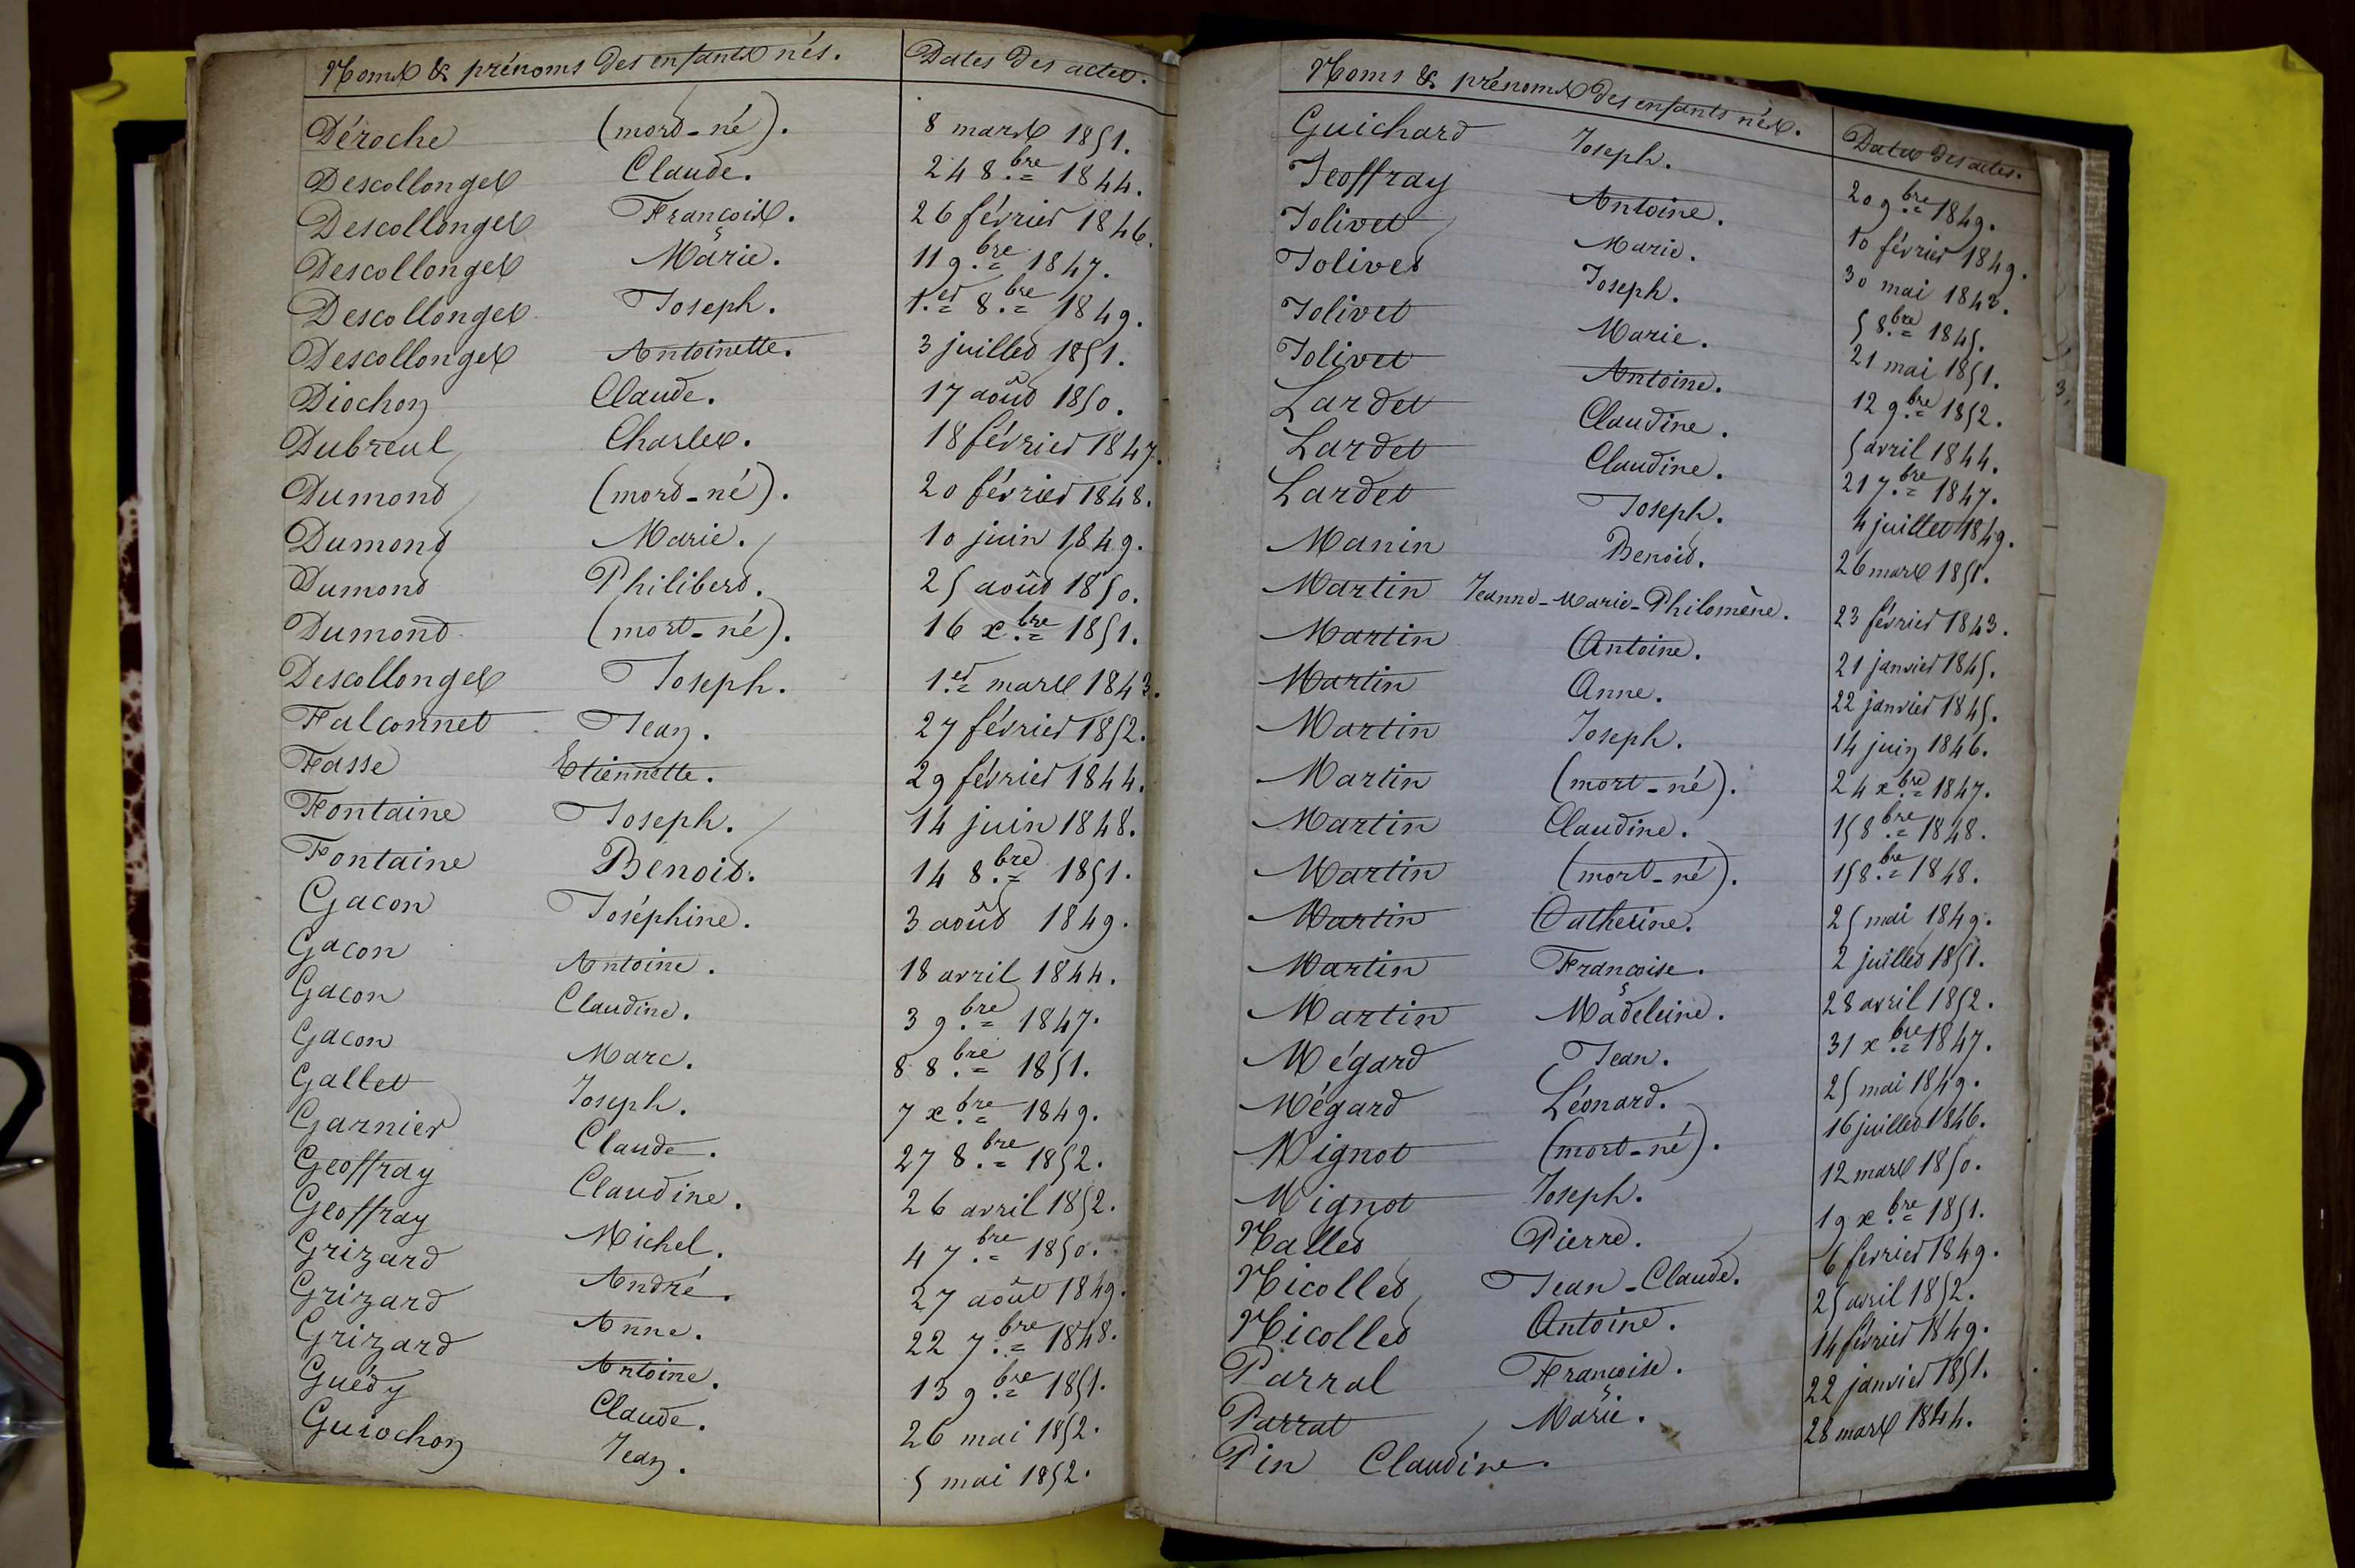 Noms & prénoms des enfants nés. Dates des actes.
Déroche (mort-né). 8 mars 1851.
Descollonges Claude. 24 8.bre 1844.
Descollonges François. 26 février 1846.
Descollonges Marie. 11 9.bre 1847.
Descollonges Joseph. 1.er 8.bre 1849.
Descollonges Antoinette. 3 juillet 1851.
Diochon Claude. 17 août 1850.
Dubreul Charles. 18 février 1847.
Dumond (mort-né). 20 février 1848.
Dumond Marie. 10 juin 1849.
Dumond Philibert. 25 août 1850.
Dumond (mort-né). 16 x.bre 1851.
Descollonges Joseph. 1.er mars 1843.
Falconnet Jean. 27 février 1852.
Fasse Etiennette. 29 février 1844.
Fontaine Joseph. 14 juin 1848.
Fontaine Benoit. 14 8.bre 1851.
Gacon Joséphine. 3 août 1849.
Gacon Antoine. 18 avril 1844.
Gacon Claudine. 3 9.bre 1847.
Gacon Marc. 8 8.bre 1851.
Gallet Joseph. 7 x.bre 1849.
Garnier Claude. 27 8.bre 1852.
Geoffray Claudine. 26 avril 1852.
Geoffray Michel. 4 7.bre 1850.
Grizard André. 27 août 1849.
Grizard Anne. 22 7.bre 1848.
Grizard Antoine. 13 9.bre 1851.
Guédy Claude. 26 mai 1852.
Guiochon Jean. 5 mai 1852.
Noms & prénoms des enfants nés. Dates des actes.
Guichard Joseph. 20 9.bre 1849.
Jeoffray Antoine. 10 février 1849.
Jolivet Marie. 30 mai 1843.
Jolivet Joseph. 5 8.bre 1845.
Jolivet Marie. 21 mai 1851.
Jolivet Antoine. 12 9.bre 1852.
Lardet Claudine. 5 avril 1844.
Lardet Claudine. 21 7.bre 1847.
Lardet Joseph. 4 juillet 1849.
Manin Benoit. 26 mars 1851.
Martin Jeanne-Marie-Philomène. 23 février 1843.
Martin Antoine. 21 janvier 1845.
Martin Anne. 22 janvier 1845.
Martin Joseph. 14 juin 1846.
Martin (mort-né). 24 x.bre 1847.
Martin Claudine. 15 8.bre 1848.
Martin (mort-né). 15 8.bre 1848.
Martin Catherine. 25 mai 1849.
Martin Françoise. 2 juillet 1851.
Martin Madeleine. 28 avril 1852.
Mégard Jean. 31 x.bre 1847.
Mégard Léonard. 25 mai 1849.
Mignot (mort-né). 16 juillet 1846.
Mignot Joseph. 12 mars 1850.
Nallet Pierre. 19 x.bre 1851.
Nicollet Jean-Claude. 6 fevrier 1849.
Nicollet Antoine. 25 avril 1852.
Parral Françoise. 14 février 1849.
Parrat Marie. 22 janvier 1851.
Pin Claudine. 28 mars 1844.